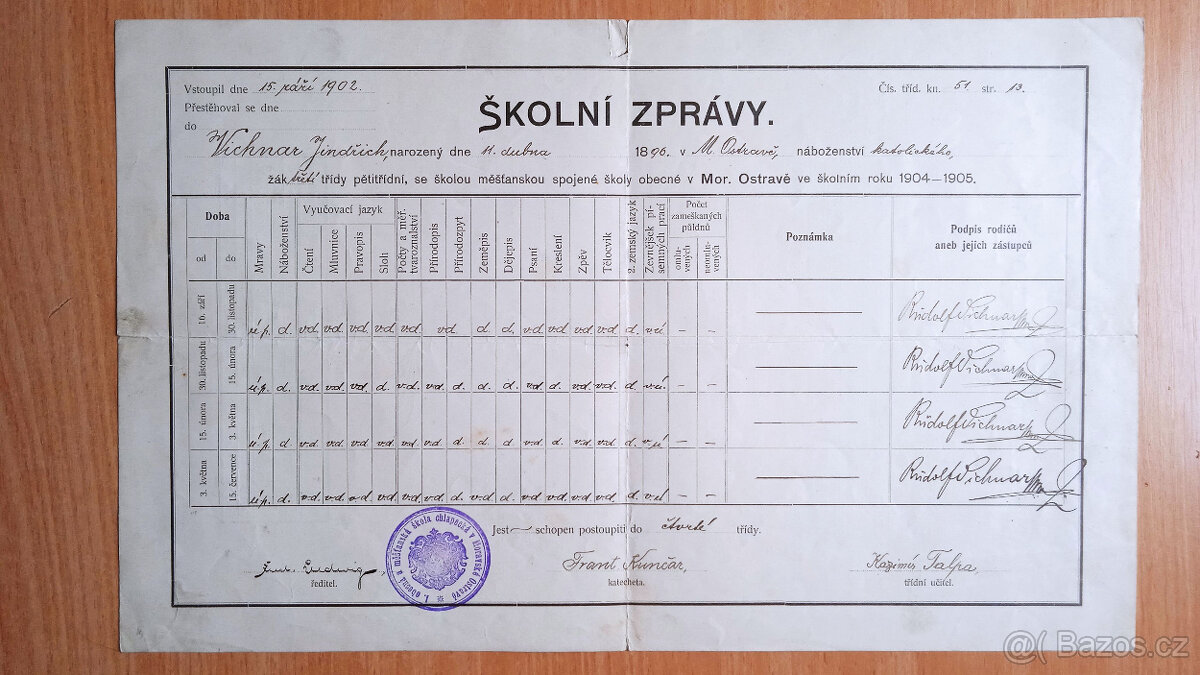 Vstoupil dne 15. září 1902.
Čís. tříd. kn. 51 str. 13.
Přestěhoval se dne
do
ŠKOLNÍ ZPRÁVY.
Vichnar Jindřich, narozený dne 11. dubna 1896 v M. Ostravě, náboženství katolického,
žák třetí třídy pětitřídní, se školou měšťanskou spojené školy obecné v Mor. Ostravě ve školním roku 1904—1905.
Doba
od
do
Mravy
Náboženství
Vyučovací jazyk
Čtení
Mluvnice
Pravopis
Sloh
Počty a měř. tvaroznalství
Přírodopis
Přírodozpyt
Zeměpis
Dějepis
Psaní
Kreslení
Zpěv
Tělocvik
2. zemský jazyk
Zevnějšek písemných prací
Počet zameškaných půldnů
omluvených
neomluvených
Poznámka
Podpis rodičů
aneb jejich zástupců
16. září 30. listopadu
ú.p. d. vd. vd. vd. vd. vd. vd d d. vd vd vd. vd. d. vú — — Rudolf Vichnar
30. listopadu 15. února
ú.p. d. vd. vd. vd. d. vd. vd. d. d. d. vd. d. vd. vd. d. vú. — — Rudolf Vichnar
15. února 3. května
ú.p. d. vd. vd. vd. vd. vd. vd. d. d. d vd. d. vd. vd. d. vú — — Rudolf Vichnar
3. května 15. července
ú.p. d. vd. vd. vd. vd. vd. vd. d. vd. d. vd. vd. vd. vd. d. vú — — Rudolf Vichnar
Jest — schopen postoupiti do čtvrté třídy.
I. obecná a měšťanská škola chlapecká v Moravské Ostravě
Ludwig,
Frant Kunčar,
Kazimír Talpa,
ředitel.
katecheta.
třídní učitel.
@( Bazos.cz